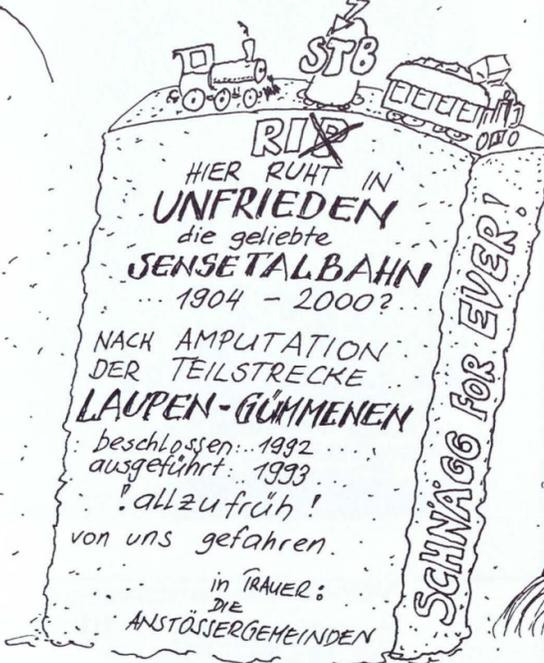 STB
RIP
HIER RUHT IN
UNFRIEDEN
die geliebte
SENSETALBAHN
1904 - 2000?
NACH AMPUTATION
DER TEILSTRECKE
LAUPEN-GÜMMENEN
beschlossen: 1992
ausgeführt: 1993
! allzu früh !
von uns gefahren.
in TRAUER:
DIE
ANSTÖSSERGEMEINDEN
SCHNÄGG FOR EVER!